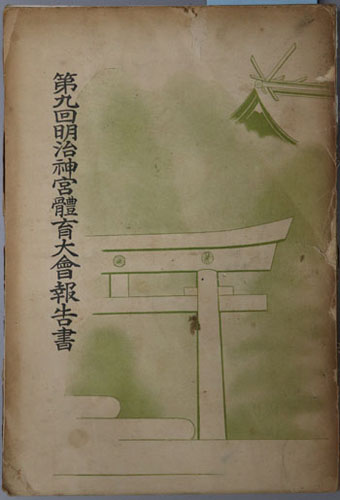 第九回明治神宮體育大會報告書